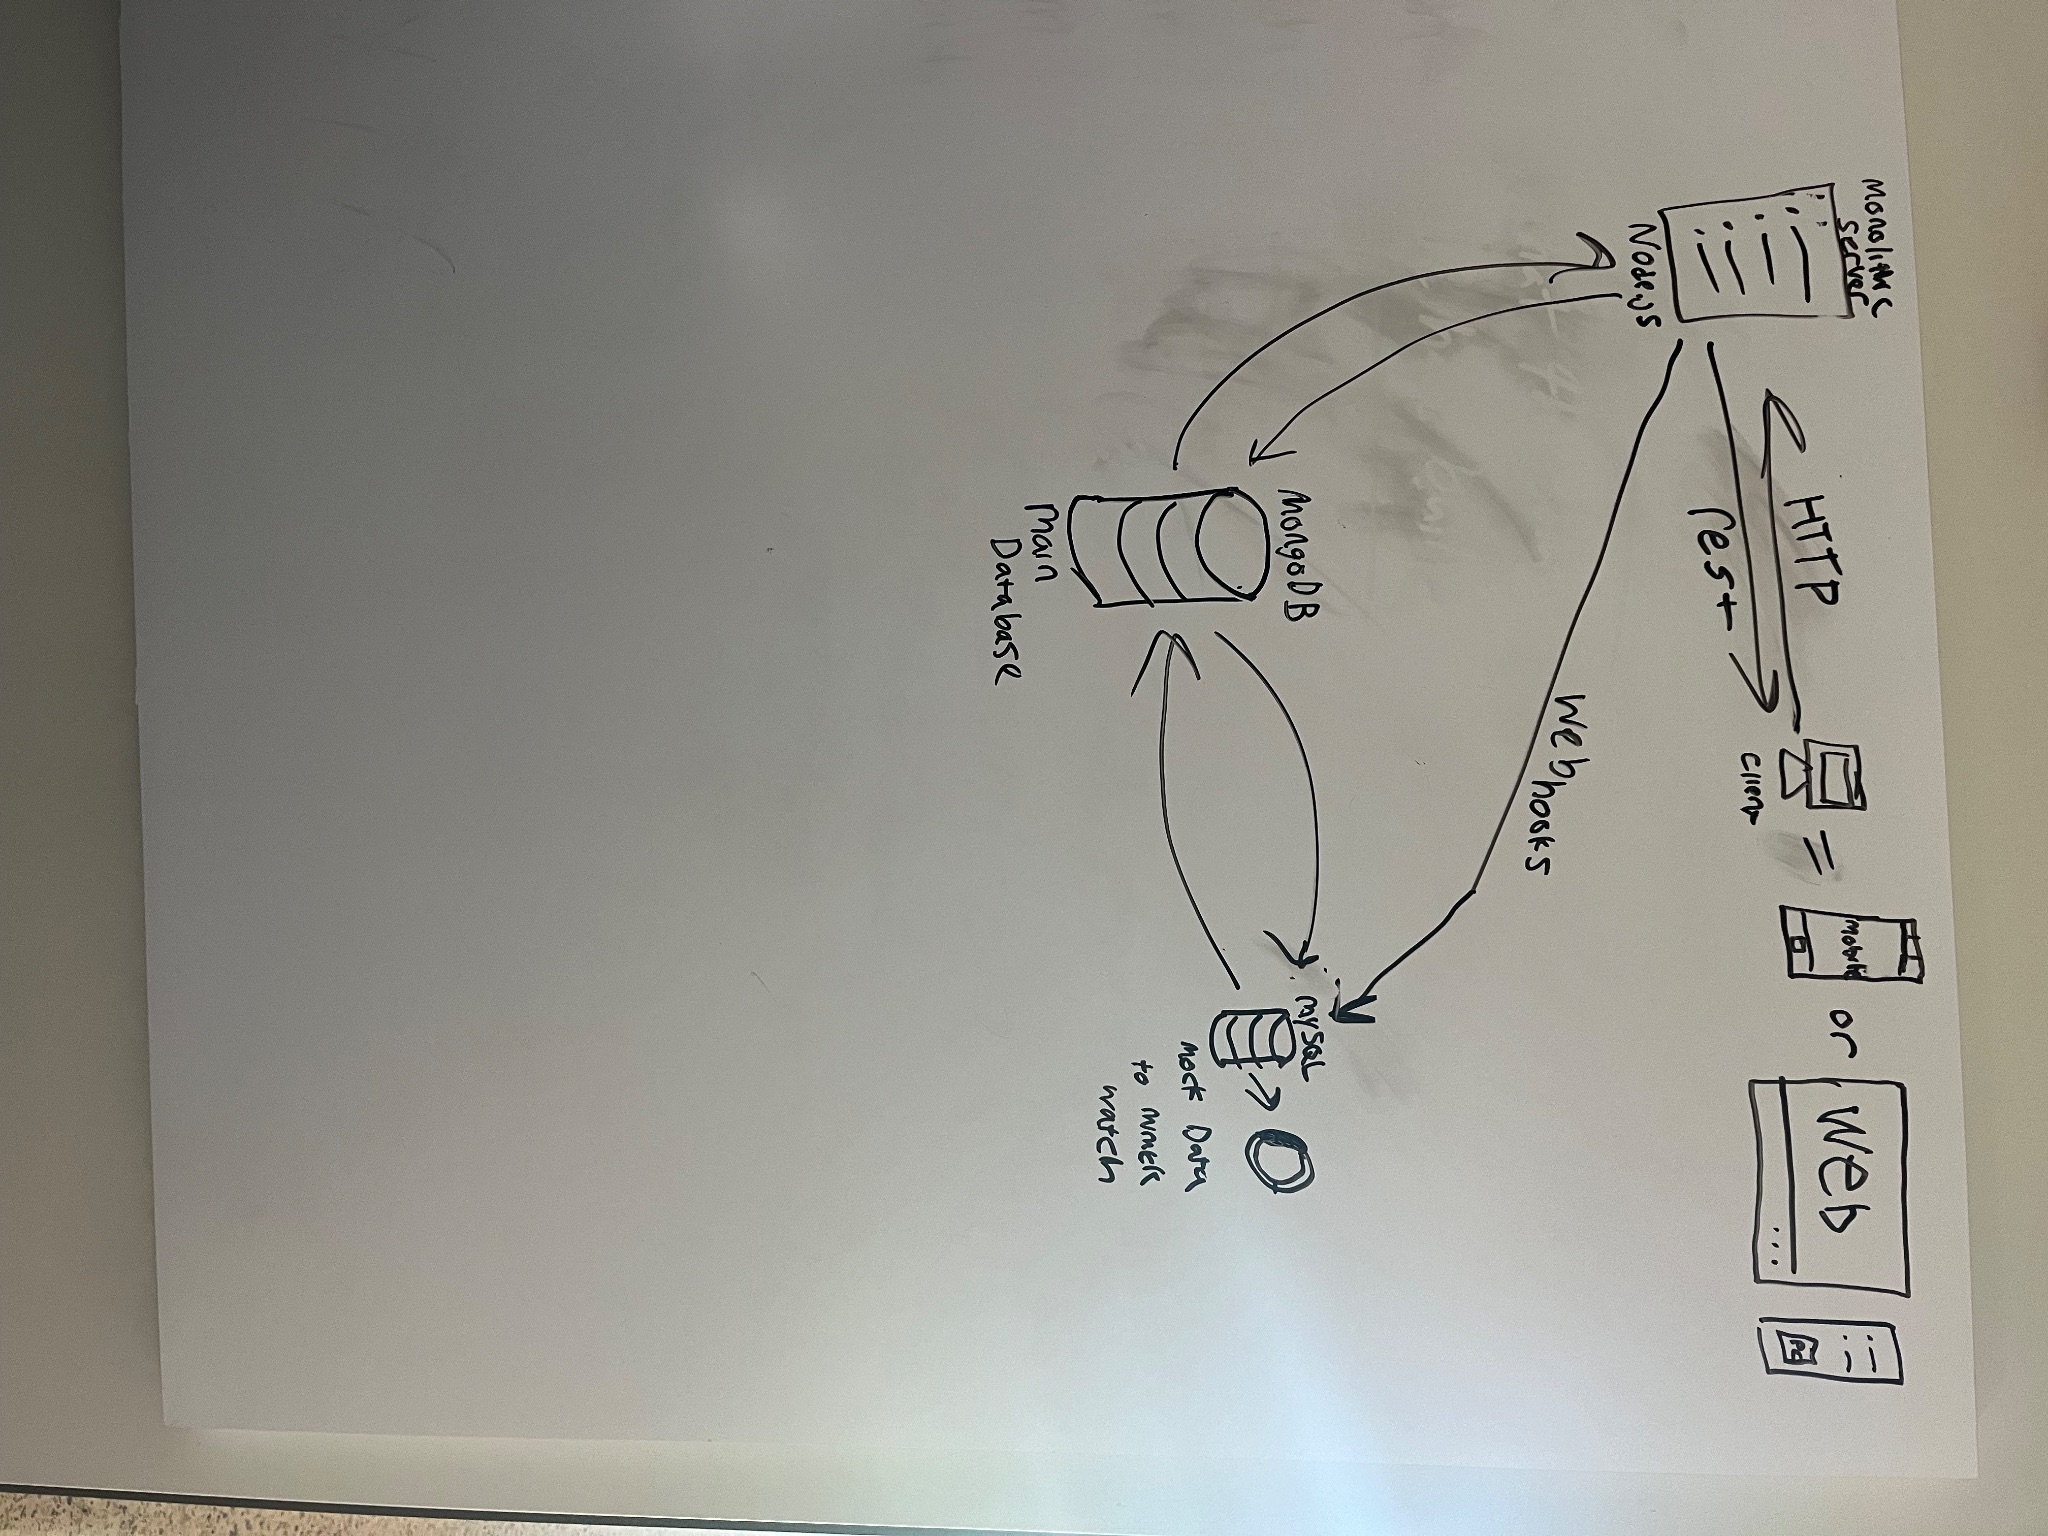 Monolithic
Server
Nodejs
HTTP
rest
client
=
mobile
or
Web
...
Webhooks
MongoDB
Main
Database
MySQL
Mock Data
watch